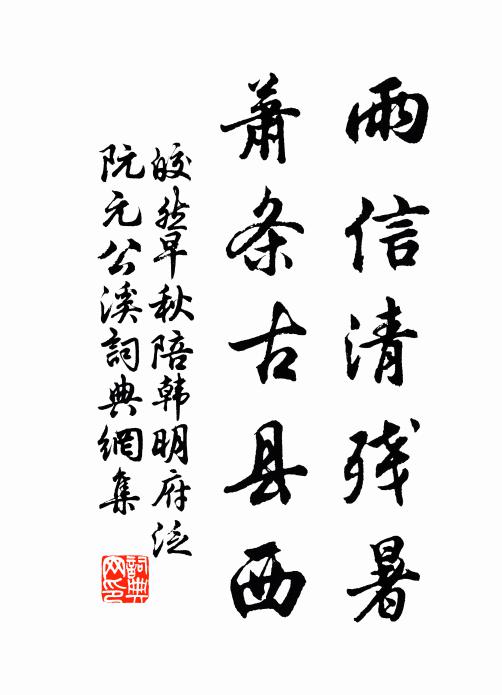 雨信清残暑
萧条古县西
皎然早秋陪韩明府泛
阮元公溪詞典網集
詞典
网印